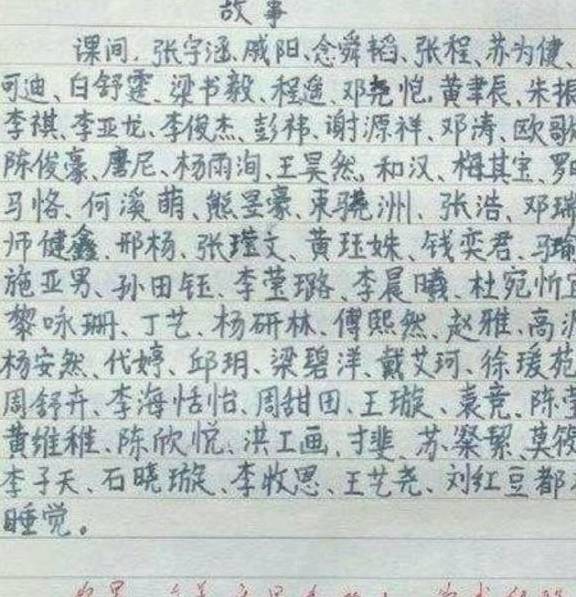 故事
课间，张宇涵、戚阳、念舜韬、张程、苏为健、
可迪、白舒霆、梁书毅、程遥、邓尧恺、黄聿辰、朱振
李祺、李亚龙、李俊杰、彭祎、谢源祥、邓涛、欧歌
陈俊豪、詹尼、杨雨洵、王昊然、和汉、梅其宝、罗
马恪、何溪萌、熊昱豪、束骁洲、张浩、邓瑞
师健鑫、邢杨、张瑾文、黄珏姝、钱奕君、马瑜
施亚男、孙田钰、李莹璐、李晨曦、杜宛忻
黎咏珊、丁艺、杨研林、傅熙然、赵雅、高
杨安然、代婷、邱玥、梁碧洋、戴艾珂、徐瑗苑
周舒卉、李海恬怡、周甜田、王璇、袁竞、陈
黄维稚、陈欣悦、洪工画、才斐、苏絜、莫筱
李子天、石晓璇、李牧恩、王艺尧、刘红豆都
睡觉。